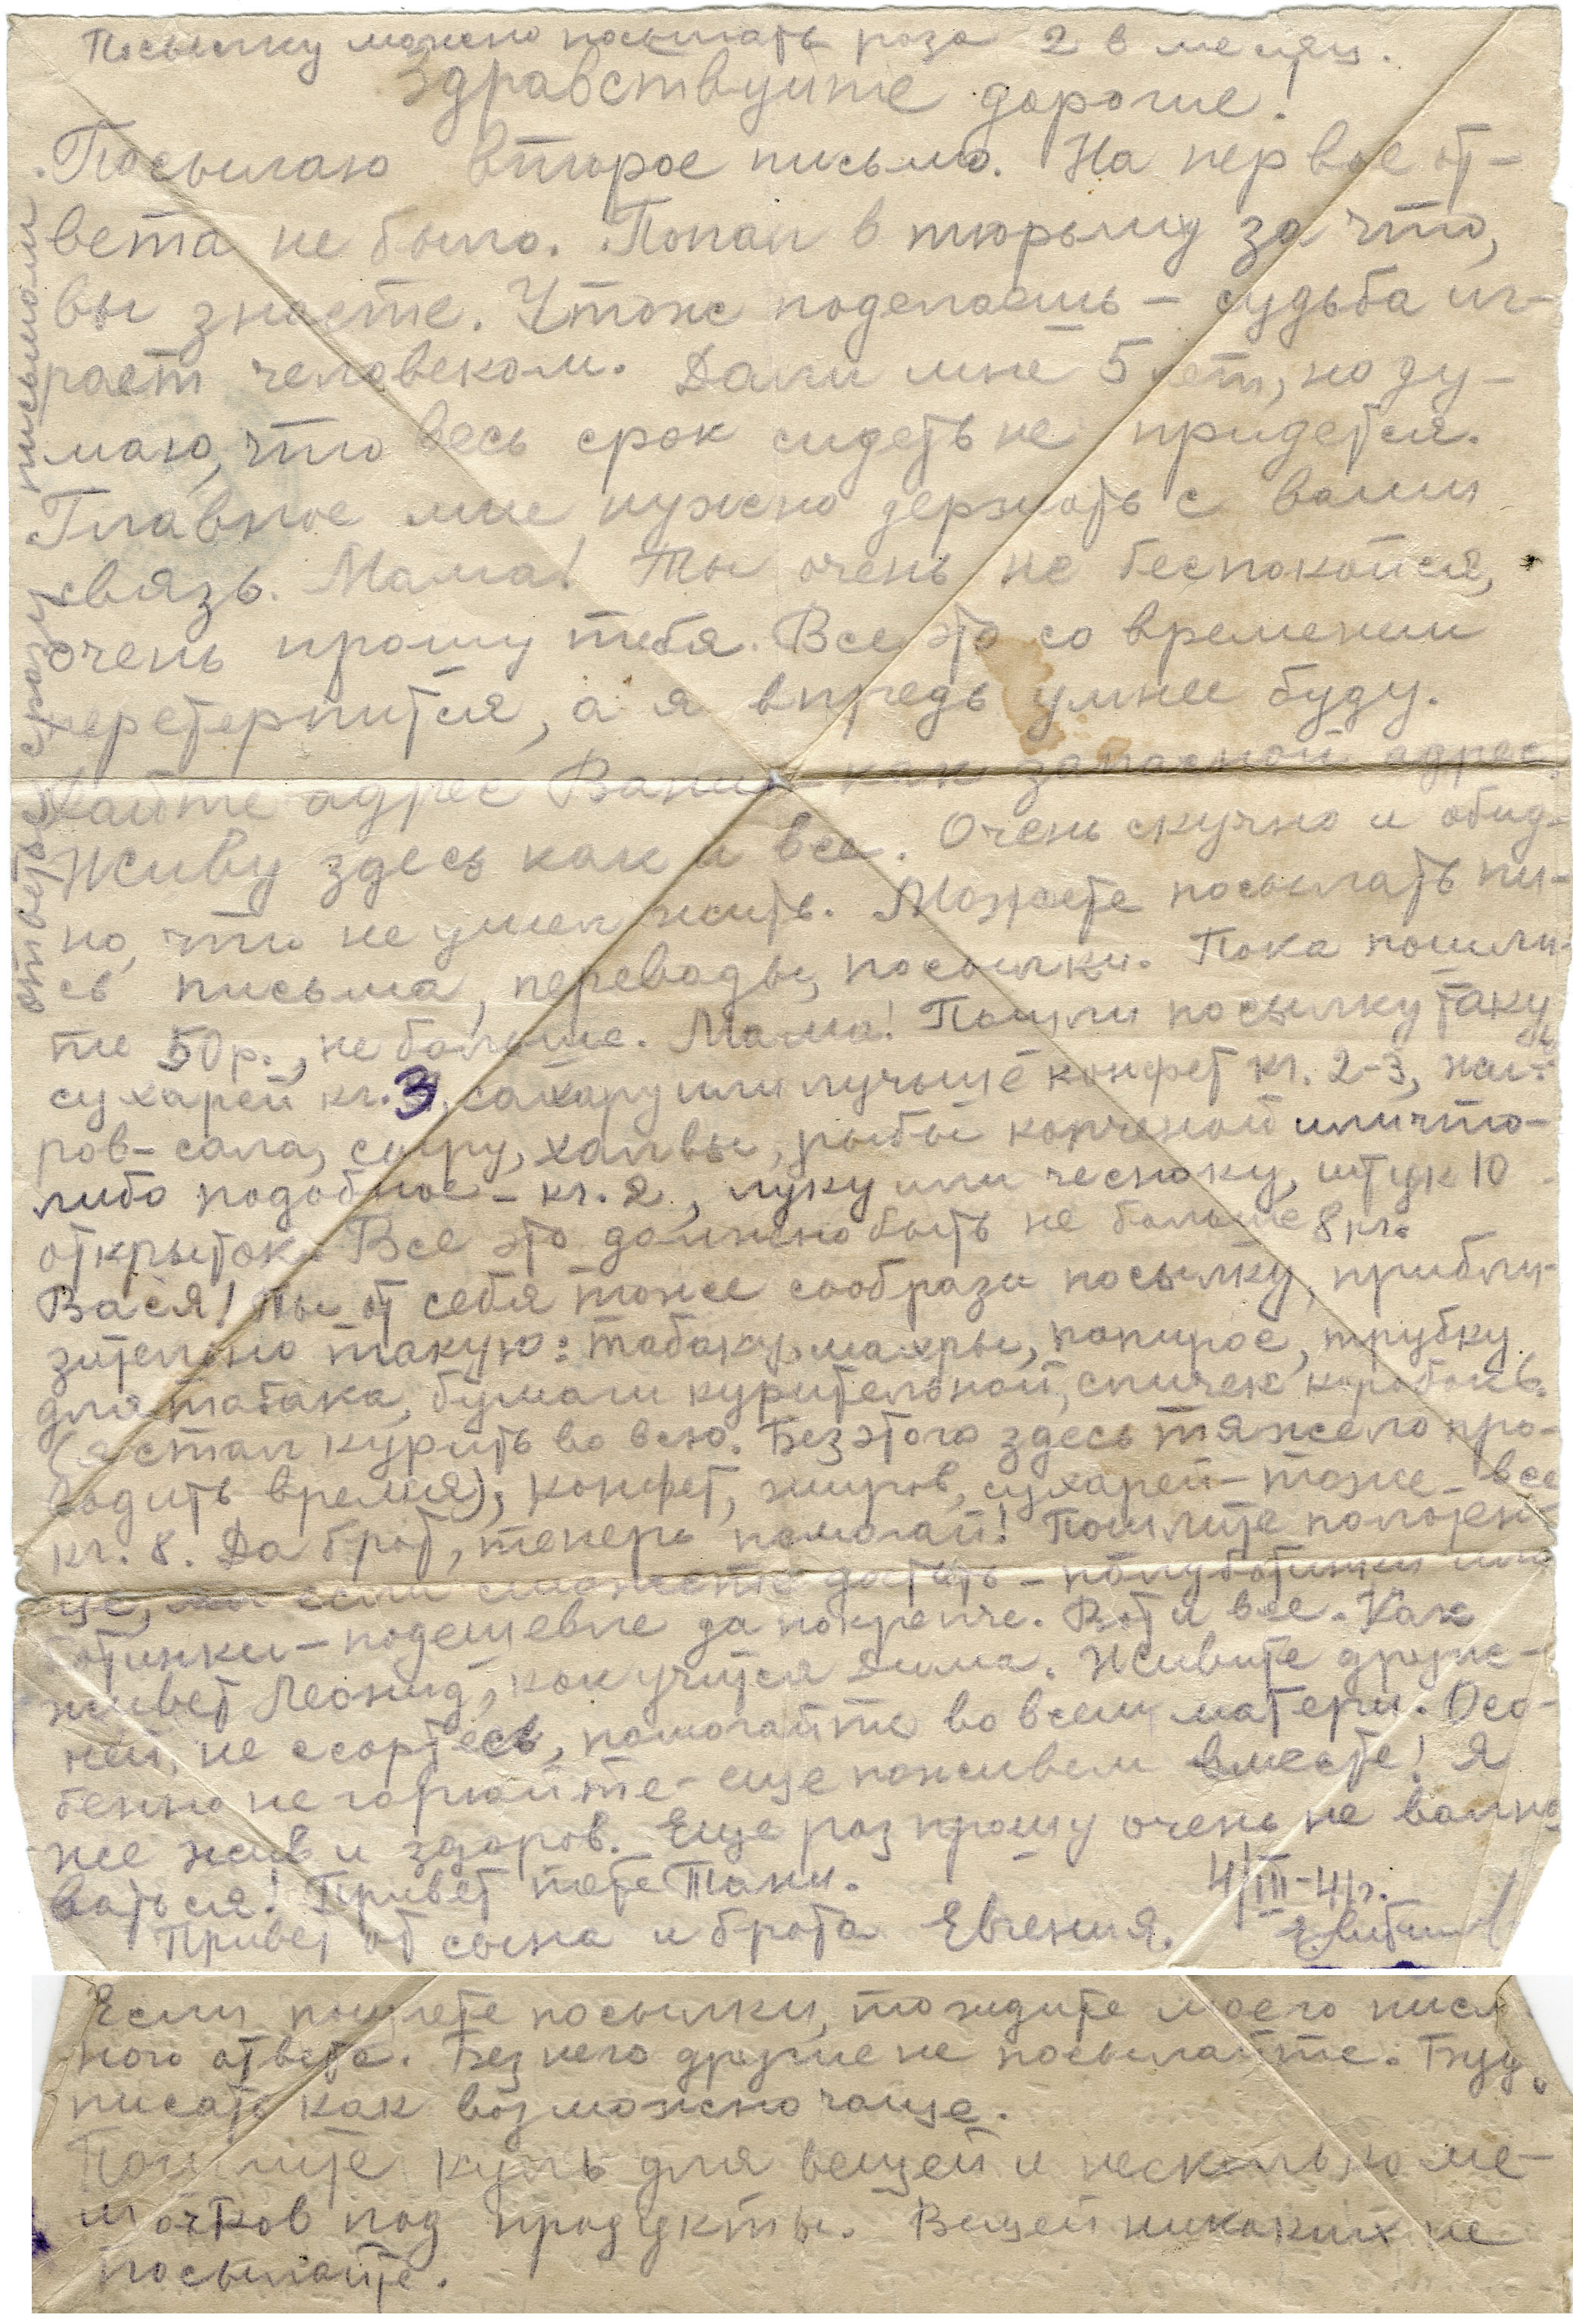 Посылку можно посылать раза 2 в месяц.
Здравствуйте дорогие!
Посылаю второе письмо. На первое от-
вета не было. Попал в тюрьму за что,
вы знаете. Чтож поделаешь – судьба иг-
рает человеком. Дали мне 5 лет, но ду-
маю, что весь срок сидеть не придется.
Главное мне нужно держать с вами
связь. Мама! Ты очень не беспокойся,
очень прошу тебя. Все это со временем
перетерпится, а я впредь умнее буду.
Дайте адрес Вани – как запасной адрес.
Живу здесь как и все. Очень скучно и обид-
но, что не умел жить. Можете посылать
сь письма, переводы, посылки. Пока пошли-
те 50 р., не больше. Мама! Пошли посылку такую
сухарей кг. 3, сахару или лучше конфет кг. 2-3, жи-
ров – сала, сыру, халвы, рыбы копченой или что-
либо подобное – кг. 2, луку или чесноку, штук 10
открыток. Все это должно быть не больше 8 кг.
Вася! Ты от себя тоже сообрази посылку, прибли-
зительно такую: табаку, махры, папирос, трубку
для табака, бумаги курительной, спичек коробок.
(я стал курить во всю. Без этого здесь тяжело про-
водить время), конфет, жиров, сухарей – тоже – все
кг. 8. Да брат, теперь помогай! Пошлите полотен-
це, если сможете достать – полуботинки или
ботинки – подешевле да покрепче. Вот и все. Как
живет Леонид, как учится Дима. Живите друж-
ней, не ссортесь, помогайте во всем матери. Осо-
бенно не горюйте – еще поживем вместе! Я
же жив и здоров. Еще раз прошу очень не волно-
ваться! Привет тете Тани.
4/III-41г.
Привет от сына и брата Евгения.
отвечайте сразу письмом.
Если пошлете посылки, то ждите моего письм
ного ответа. Без него другие не посылайте. Буду
писать как возможно чаще.
Пошлите куль для вещей и несколько ме-
шочков под продукты. Вещей никаких не
посылайте.